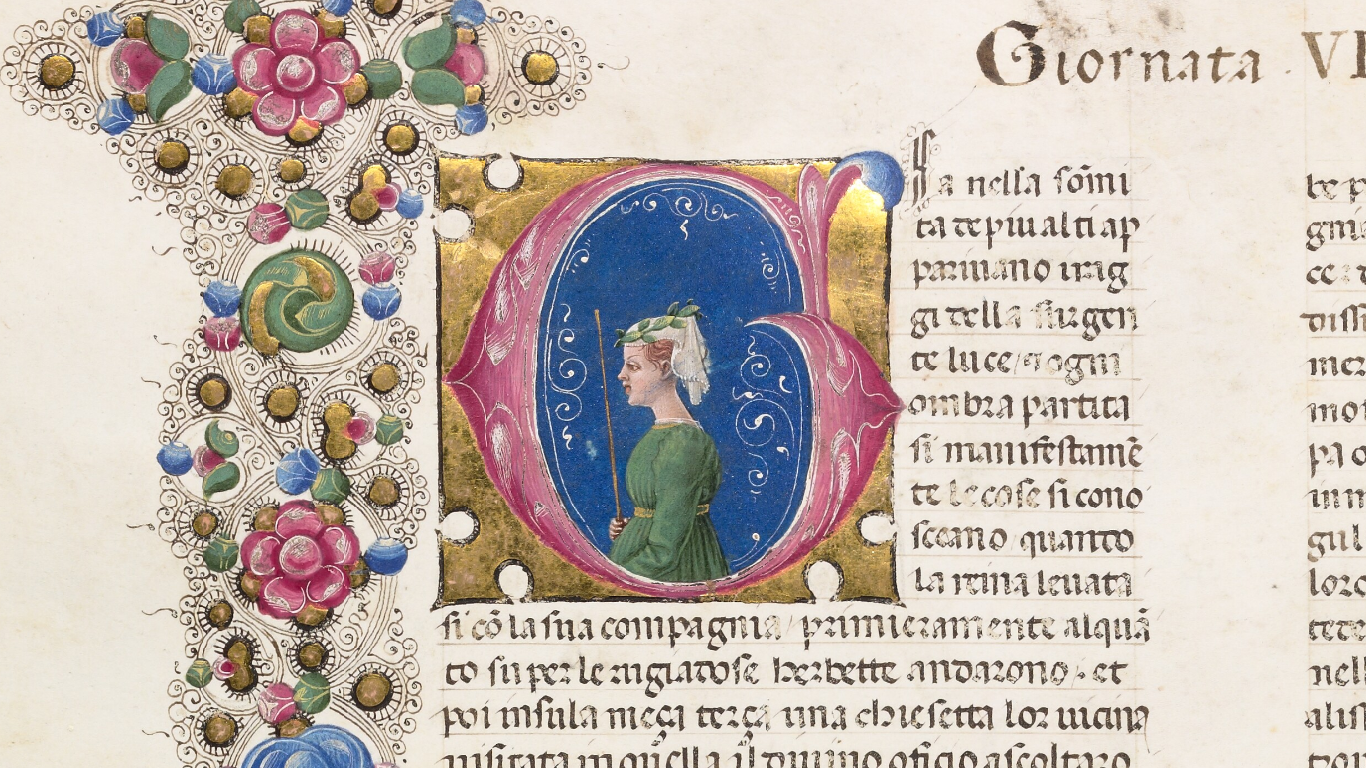 Giornata VI
Ia nella sōmi
ta de piu alti ap
pariuano i rag
gi della surgen
te luce, & ogni
ombra partita
si manifestamē
te le cose si cono
sceano quanto
la reina leuata
si cō la sua compagnia, primieramente alquā
to su per le rugiadose herbette andarono, et
poi insula meça terça una chiesetta lor uicina
uisitata in quella il diuino oficio ascoltaro